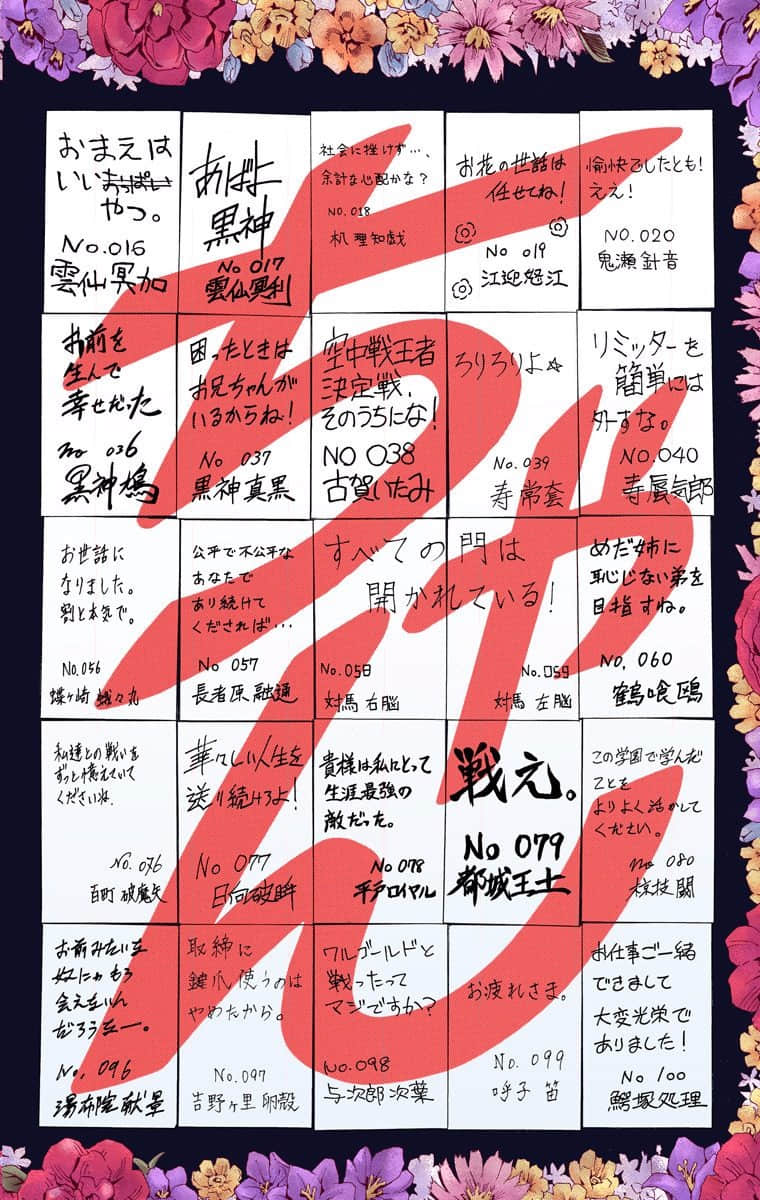 ちゃん
おまえは
いいおっぱい
やつ。
No.016
雲仙冥加
あばよ
黒神
No 017
雲仙冥利
社会に挫けず…、
余計な心配かな?
NO.018
机 理知戯
お花の世話は
任せてね!
No 019
江迎怒江
愉快でしたとも!
ええ!
NO.020
鬼瀬針音
お前を
生んで
幸せだった
No 036
黒神鳩
困ったときは
お兄ちゃんが
いるからね!
No 037
黒神真黒
空中戦王者
決定戦、
そのうちにな!
NO 038
古賀いたみ
ろりろりよ☆
No.039
寿常套
リミッターを
簡単には
外すな。
NO.040
寿蜃気郎
お世話に
なりました。
割と本気で。
No.056
蝶ヶ崎 蛾々丸
公平で不公平な
あなたで
あり続けて
くだされば…
No 057
長者原融通
すべての門は
開かれている!
No.058
対馬 右脳
No.059
対馬 左脳
めだ姉に
恥じない弟を
目指すね。
No, 060
鶴喰鴎
私達との戦いを
ずっと憶えていて
くださいね.
No. 076
百町 破魔矢
華々しい人生を
送り続けろよ!
No 077
日向破眸
貴様は私にとって
生涯最強の
敵だった。
No 078
平戸ロイヤル
戦え。
No 079
都城王土
この学園で学んだ
ことを
よりよく活かして
ください。
No 080
椋枝闇
お前みたいな
奴にゃもう
会えないん
だろうなー。
No, 096
湯布院
取締に
鍵爪使うのは
やめたから。
No.097
吉野ヶ里 卵殻
ワルゴールドと
戦ったって
マジですか?
No.098
与次郎次葉
お疲れさま。
No. 099
呼子 笛
お仕事ご一緒
できまして
大変光栄で
ありました!
No 100
鰐塚処理